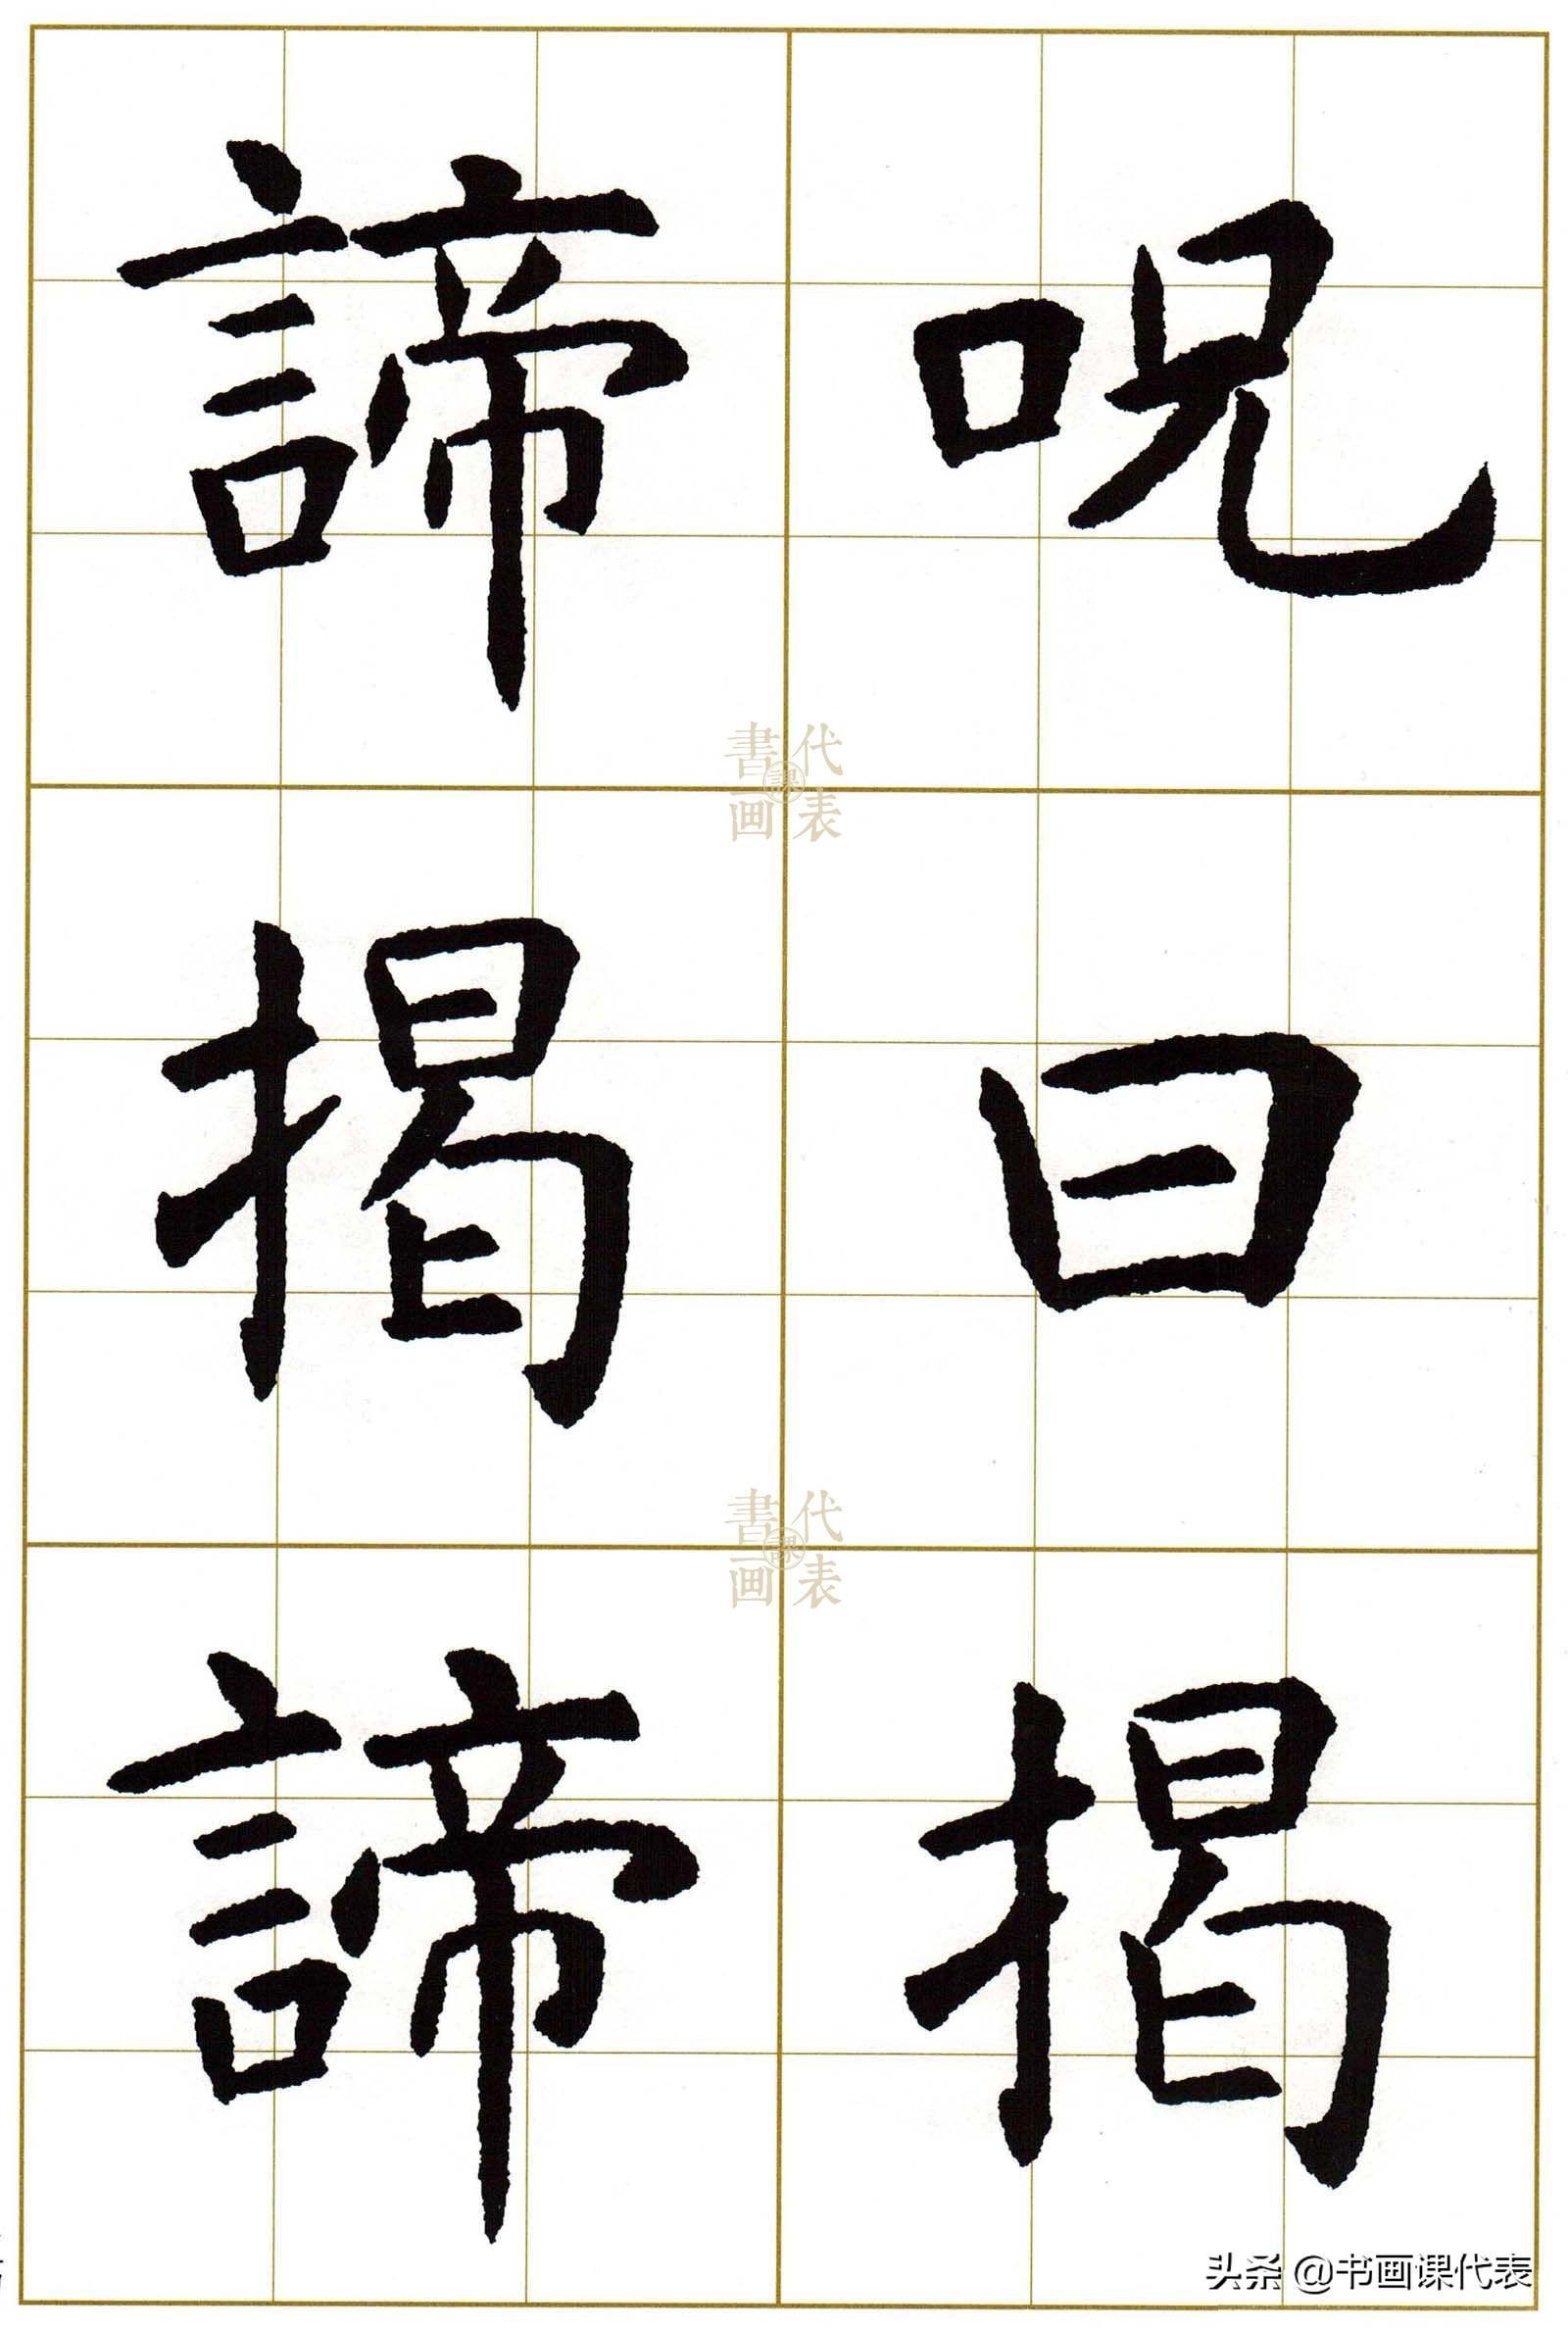 呪曰揭
諦揭諦
代表書画課
代表書画課
头条 @书画课代表